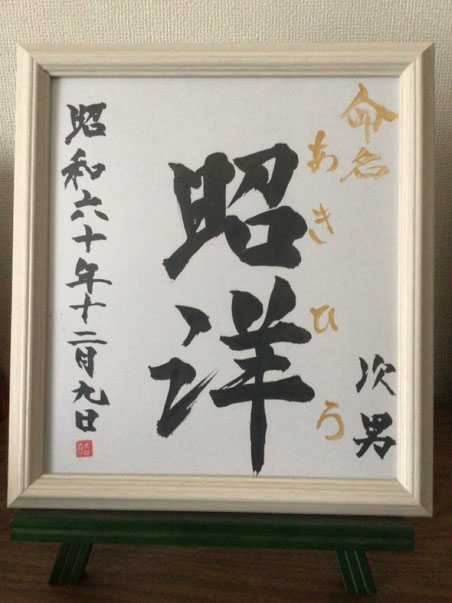 命名
あきひろ
次男
昭洋
昭和六十年十二月九日